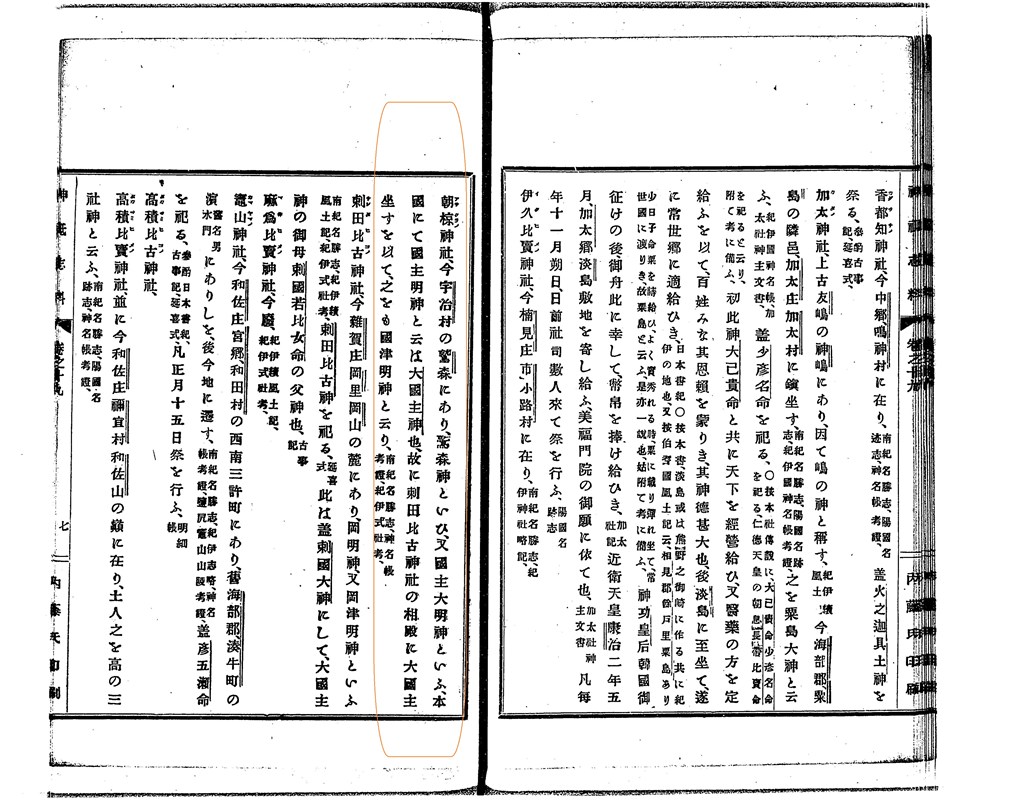 香都知神社、今中郷鳴神村に在り、南紀名勝志、陽國名跡志、神名帳考證、蓋火之迦具土神を
祭る、參酌古事記、延喜式、
加太神社、上古友嶋の神嶋にあり、因て嶋の神と稱す、紀伊續風土 今海部郡粟
島の隣邑、加太庄加太村に鎭坐す、南紀名勝志、陽國名跡志、紀伊國神名帳考證、之を粟島大神と云
ふ、紀伊國神名帳、加太社神主文書、蓋少彦名命を祀る、〇按本社傳説に、大己貴命少彦名命を祀る、仁德天皇の朝息長帶比賣命を祀ると云り、
附て考に備ふ、初此神大己貴命と共に天下を經營給ひ、又醫藥の方を定
給ふを以て、百姓みな其恩賴を蒙りき、其神德甚大也、後淡島に至坐て、遂
に常世郷に適給ひき、日本書紀〇按本書、淡島或は熊野之御碕に作る、共に紀伊の地也、又按伯耆國風土記云、相見郡餘戸里粟島あり
少日子命粟を蒔給ひ、よく實秀れる時、粟に載り彈れ坐て、常世國に渡りき、故粟島と云ふ、是亦一說也、姑附て考に備ふ、神功皇后韓國御
征けの後、御舟此に幸して、幣帛を捧け給ひき、加太社記 近衛天皇康治二年五
月、加太郷淡島敷地を寄し給ふ、美福門院の御願に依て也、加太社神主文書 凡每
年十一月朔日、日前社司數人來て祭を行ふ、陽國名跡志
伊久比賣神社、今楠見庄市小路村に在り、南紀名勝志、紀伊神社略記、
朝椋神社、今宇治村の鷺森にあり、鷺森神といひ、又國主大明神といふ、本
國にて國主明神と云は大國主神也、故に刺田比古神社の相殿に大國主
坐すを以て、之をも國津明神と云り、南紀名勝志、神名帳考證、紀伊式社考、
刺田比古神社、今雜賀庄岡里岡山の麓にあり、岡明神又岡津明神といふ
南紀名勝志、紀伊續風土記、紀伊式社考、刺田比古神を祀る、延喜式 此は蓋刺國大神にして、大國主
神の御母刺國若比女命の父神也、古事記
麻爲比賣神社、今廢、紀伊續風土記、紀伊式社考、
竈山神社、今和佐庄宮郷、和田村の西南三許町にあり、舊海部郡、湊牛町の
濱舊名男水門にありしを、後今地に遷す、南紀名勝志、紀伊志略、神名帳考證、鹽尻竈山山陵考證、蓋彦五瀬命
を祀る、參酌日本書紀、古事記、延喜式、凡正月十五日祭を行ふ、明細帳
高積比古神社、
高積比賣神社、並に今和佐庄禰宜村和佐山の巓に在り、土人之を高の三
社神と云ふ、南紀名勝志、陽國名跡志、神名帳考證、
七